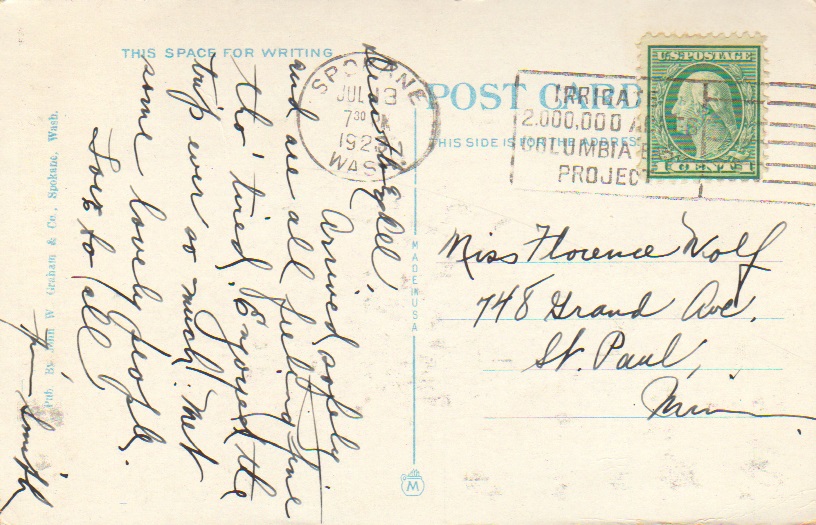 THIS SPACE FOR WRITING
Arrived safely
and are all feeling fine
tho' tired. Enjoyed the
trip ever so much! Met
some lovely people.
Love to all
Smith
Pub. By John W. Graham & Co., Spokane, Wash.
MADE IN USA
M
SPOKANE
JUL 13
7 30
192
WASH
POST CARD
THIS SIDE IS FOR THE ADDRESS
IRRIGATE
2,000,000 ACRES
COLUMBIA
PROJECT
U.S. POSTAGE
1 CENT 1
Miss Florence Wolf
748 Grand Ave.
St. Paul,
Minn